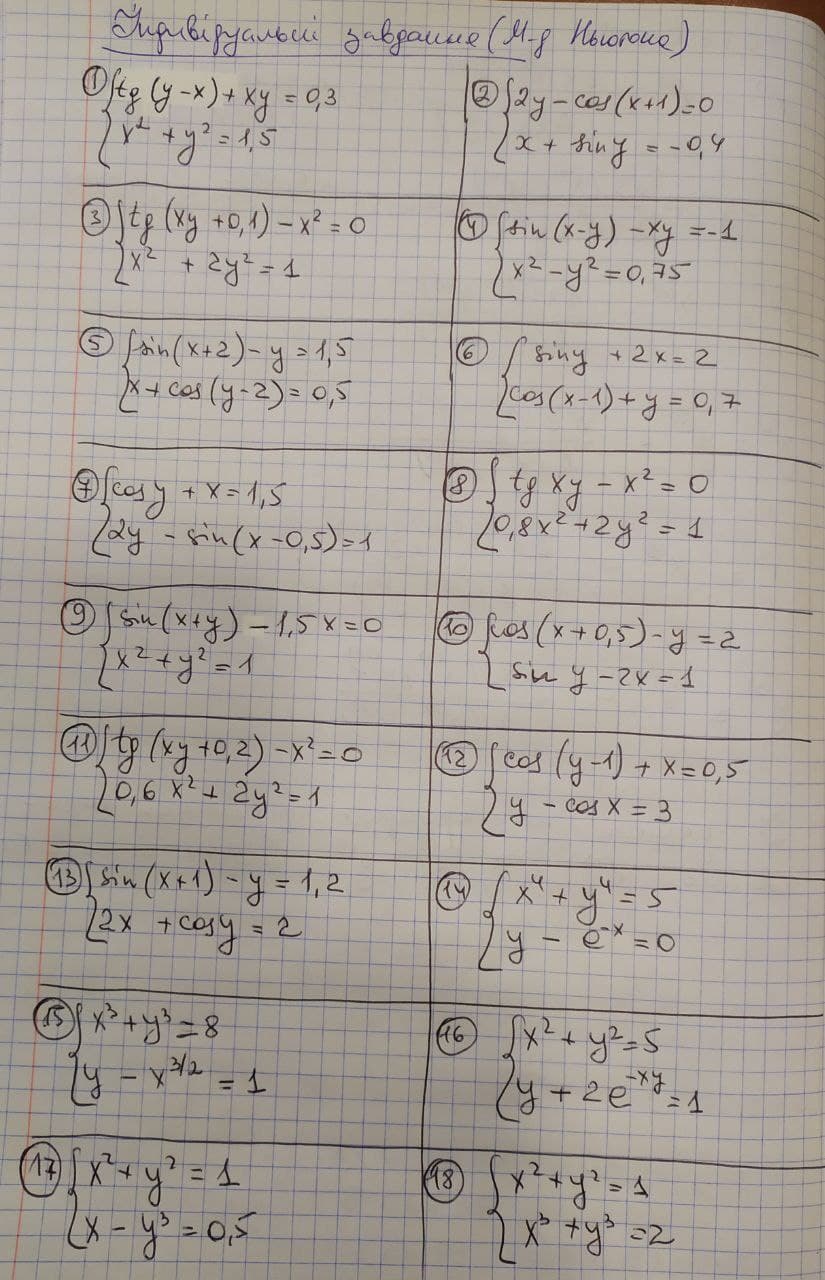 Індивідуальні завдання (М-д Ньютона)
① { tg (y-x) + xy = 0,3
x² + y² = 1,5
② { 2y - cos(x+1) = 0
x + sin y = -0,4
③ { tg (xy + 0,1) - x² = 0
x² + 2y² = 1
④ { sin(x-y) - xy = -1
x² - y² = 0,75
⑤ { sin(x+2) - y = 1,5
x + cos(y-2) = 0,5
⑥ { sin y + 2x = 2
cos(x-1) + y = 0,7
⑦ { cos y + x = 1,5
2y - sin(x-0,5) = 1
⑧ { tg xy - x² = 0
0,8x² + 2y² = 1
⑨ { sin(x+y) - 1,5x = 0
x² + y² = 1
⑩ { cos(x+0,5) - y = 2
sin y - 2x = 1
⑪ { tg (xy+0,2) - x² = 0
0,6 x² + 2y² = 1
⑫ { cos (y-1) + x = 0,5
y - cos x = 3
⑬ { sin(x+1) - y = 1,2
2x + cos y = 2
⑭ { x⁴ + y⁴ = 5
y - e⁻ˣ = 0
⑮ { x³ + y³ = 8
y - x^{3/2} = 1
⑯ { x² + y² = 5
y + 2e^{-xy} = 1
⑰ { x² + y² = 1
x - y³ = 0,5
⑱ { x² + y² = 1
x³ + y³ = 2